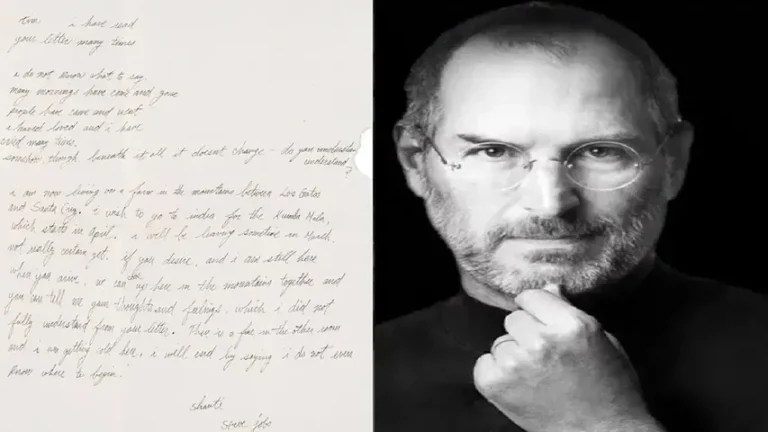 tim i have read
your letter many times
i do not know what to say.
many mornings have come and gone
people have came and went
i have loved and i have
cried many times.
somehow, though, beneath it all it doesn't change - do you understand?
i am now living on a farm in the mountains between Los Gatos
and Santa Cruz. i wish to go to india for the Kumba Mela,
which starts in April. i will be leaving sometime in March,
not really certain yet. if you desire, and i am still here
when you arrive, we can go here in the mountains together and
you can tell me your thoughts and feelings, which i did not
fully understand from your letter. There is a fire in the other room
and i am getting cold here. i will end by saying i do not even
know where to begin.
shanti
steve jobs